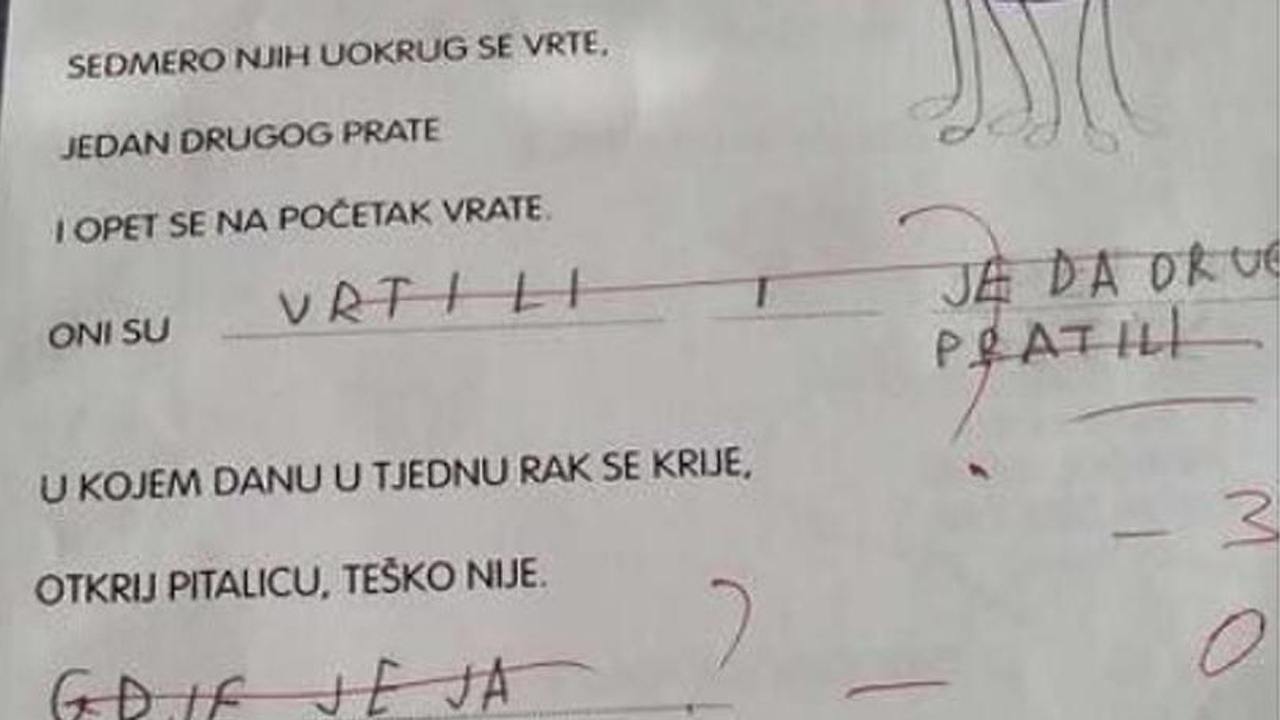 SEDMERO NJIH UOKRUG SE VRTE,
JEDAN DRUGOG PRATE
I OPET SE NA POČETAK VRATE.
ONI SU VRTILI I JE DA DRUG
PRATILI
U KOJEM DANU U TJEDNU RAK SE KRIJE,
- 3
OTKRIJ PITALICU, TEŠKO NIJE.
? 0
GDJE JE JA